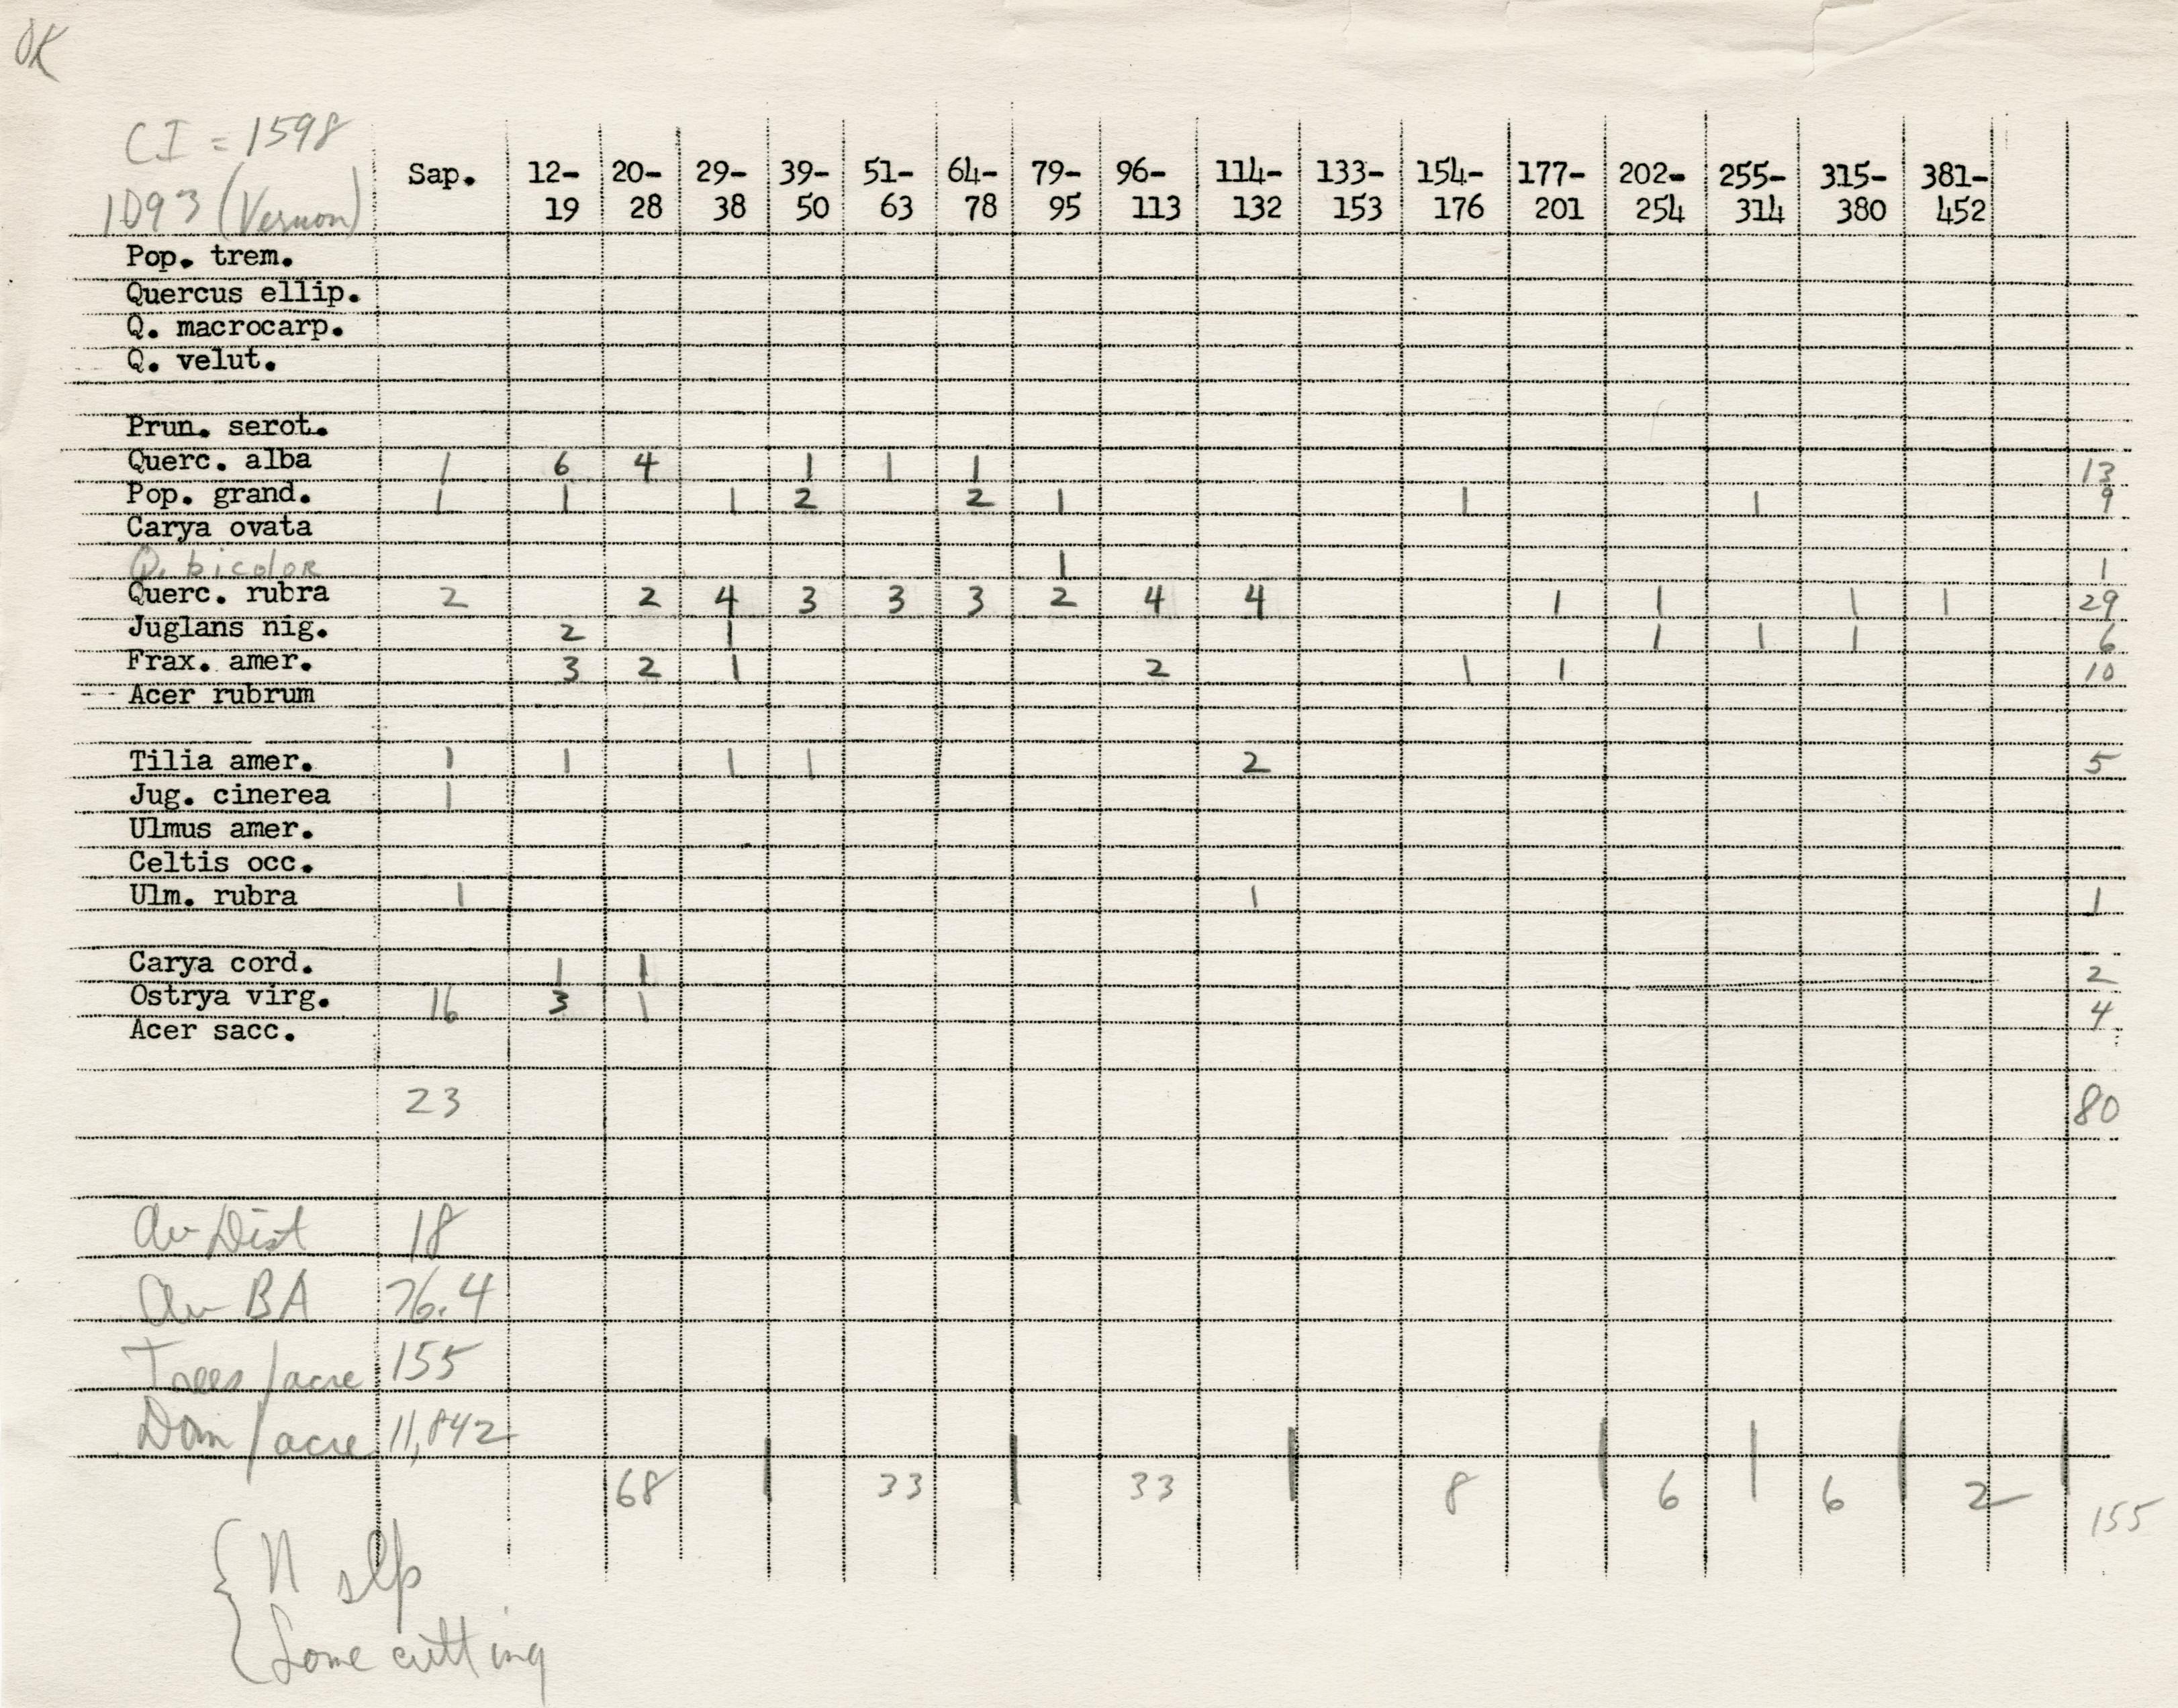 OK
CI = 1598
1093 (Vernon)
Sap. 12-19 20-28 29-38 39-50 51-63 64-78 79-95 96-113 114-132 133-153 154-176 177-201 202-254 255-314 315-380 381-452
Pop. trem.
Quercus ellip.
Q. macrocarp.
Q. velut.
Prun. serot.
Querc. alba 1 6 4 1 1 1 13
Pop. grand. 1 1 1 2 2 1 1 1 9
Carya ovata
Q. bicolor 1 1
Querc. rubra 2 2 4 3 3 3 2 4 4 1 1 1 1 29
Juglans nig. 2 1 1 1 1 6
Frax. amer. 3 2 1 2 1 1 10
Acer rubrum
Tilia amer. 1 1 1 1 2 5
Jug. cinerea 1
Ulmus amer.
Celtis occ.
Ulm. rubra 1 1 1
Carya cord. 1 1 2
Ostrya virg. 16 3 1 4
Acer sacc.
23 80
Av Dist 18
Av BA 76.4
Trees/acre 155
Dom/acre 11,842
68 33 33 8 6 6 2 155
N slp
Some cutting